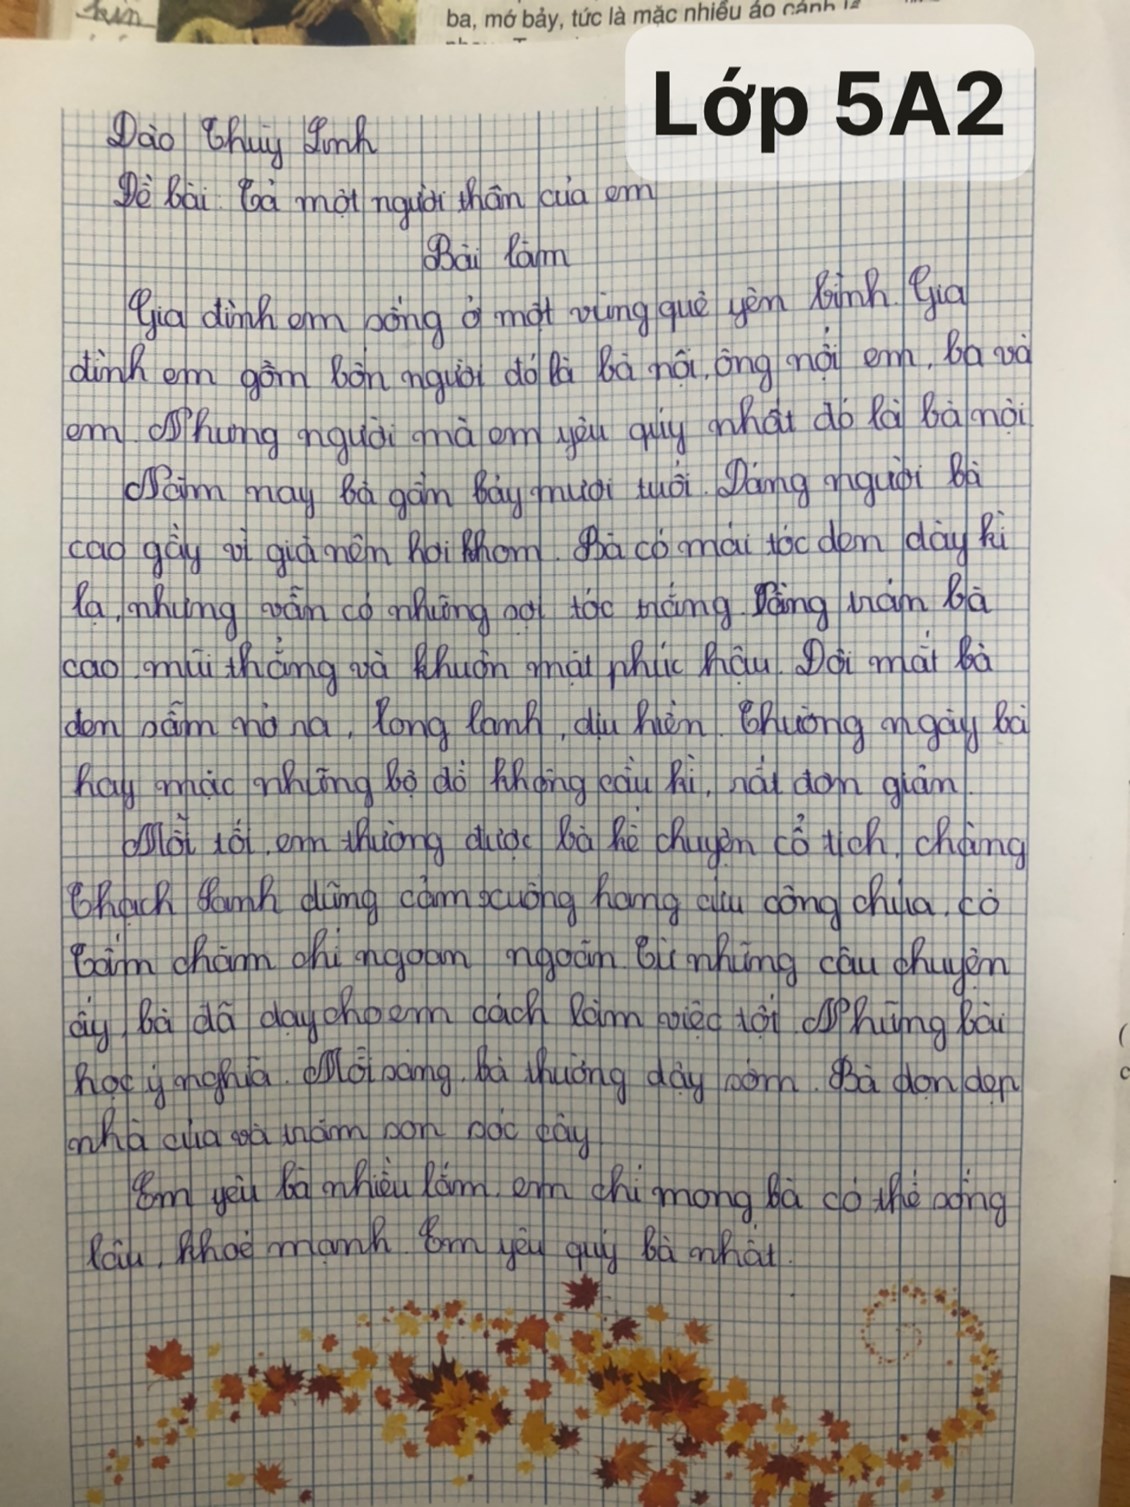 ba, mớ bảy, tức là mặc nhiều áo cánh
Lớp 5A2
Đào Thuỳ Linh
Đề bài. Tả một người thân của em
Bài làm
Gia đình em sống ở một vùng quê yên bình. Gia
đình em gồm bốn người đó là bà nội, ông nội em, ba và
em. Nhưng người mà em yêu quý nhất đó là bà nội
Năm nay bà gần bảy mươi tuổi. Dáng người bà
cao gầy vì già nên hơi khom. Bà có mái tóc đen dày kì
lạ, nhưng vẫn có những sợi tóc trắng. Vầng trán bà
cao, mũi thẳng và khuôn mặt phúc hậu. Đôi mắt bà
đen sẫm nở na, long lanh, dịu hiền. Thường ngày bà
hay mặc những bộ đồ không cầu kì, rất đơn giản.
Mỗi tối, em thường được bà kể chuyện cổ tích, chàng
Thạch Sanh dũng cảm xuống hang cứu công chúa, cô
Tấm chăm chỉ ngoan ngoãn. Từ những câu chuyện
ấy, bà đã dạy cho em cách làm việc tốt. Những bài
học ý nghĩa. Mỗi sáng, bà thường dậy sớm. Bà dọn dẹp
nhà cửa và chăm sóc cây
Em yêu bà nhiều lắm, em chỉ mong bà có thể sống
lâu, khoẻ mạnh. Em yêu quý bà nhất.